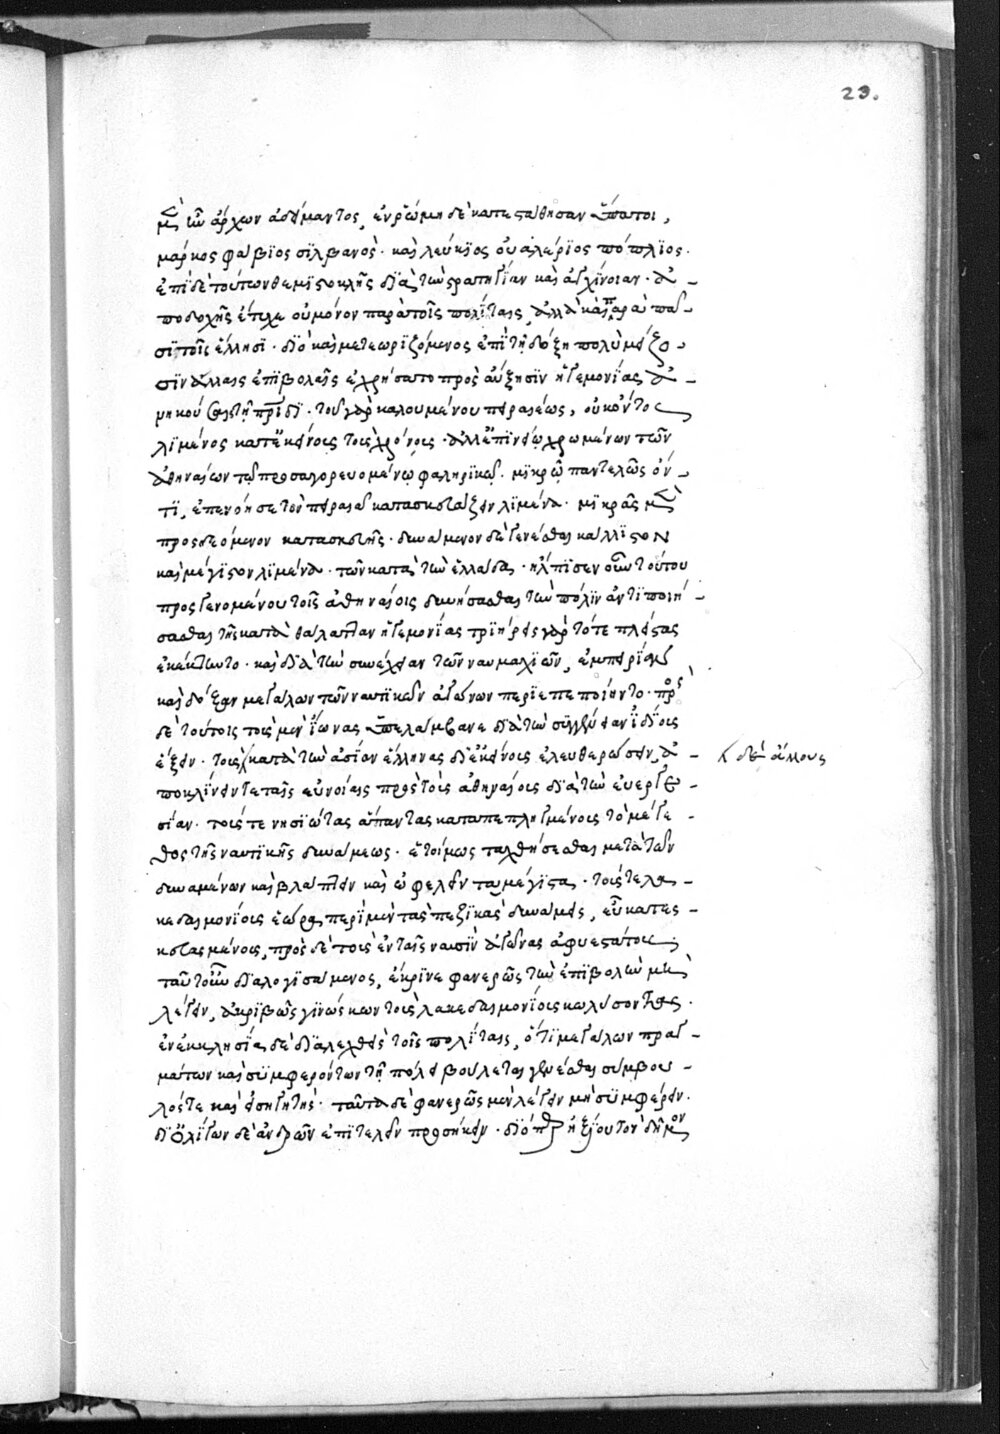 23.
μὲν ἦν ἄρχων ἀδείμαντος, ἐν ῥώμη δὲ κατεστάθησαν ὕπατοι,
μάρκος φάβϊος σϊλβανὸς. καὶ λεύκϊος οὐαλέρϊος πόπλϊος.
ἐπὶ δὲ τούτων θεμϊστοκλῆς δϊὰ τὴν στρατηγΐαν καὶ ἀγχΐνοιαν. ἀ-
ποδοχῆς ἔτυχε οὐ μόνον παρὰ τοῖς πολίταις, ἀλλὰ καὶ παρὰ πᾶ-
σϊ τοῖς ἕλλησϊ. δϊὸ καὶ μετεωρϊζόμενος ἐπὶ τῆ δόξη πολὺ μείζο-
σϊν ἄλλαις ἐπϊβολαῖς ἐχρήσατο πρὸς αὔξησϊν ἡγεμονΐας ἀ-
νηκούσαις τῆ πατρίδϊ. τοῦ γὰρ καλουμένου πειραιέως, οὐκ ὄντος
λϊμένος κατ' ἐκείνους τοὺς χρόνους. ἀλλ' ἐπϊνείω χρωμένων τῶν
ἀθηναίων τῶ προσαγορευομένω φαληρϊκῶ. μϊκρῶ παντελῶς ὄν-
τϊ, ἐπενόησε τὸν πειραιᾶ κατασκευάζειν λϊμένα. μϊκρᾶς μὲν
προσδεόμενον κατασκευῆς. δυνάμενον δὲ γενέσθαι κάλλϊστον
καὶ μέγϊστον λϊμένα. τῶν κατὰ τὴν ἑλλάδα. ἤλπϊσεν οὖν τούτου
προσγενομένου τοῖς ἀθηναίοις δυνήσασθαι τὴν πόλϊν ἀντϊποιή-
σασθαι τῆς κατὰ θάλατταν ἡγεμονΐας τρϊήρεις γὰρ τότε πλείστας
ἐκέκτηντο. καὶ δϊὰ τὴν συνέχειαν τῶν ναυμαχϊῶν, ἐμπειρΐαν
καὶ δόξαν μεγάλων τῶν ναυτϊκῶν ἀγώνων περϊεπεποίηντο. πρὸς
δὲ τούτοις τοὺς μὲν ἴωνας ὑπελάμβανε δϊὰ τὴν συγγένειαν ἰδίους
ἕξειν. τοὺς κατὰ τὴν ἀσίαν ἕλληνας δϊ' ἐκείνους ἐλευθερώσειν, ἀ-
δὲ ἄλλους
ποκλίνειν τε ταῖς εὐνοίαις πρὸς τοὺς ἀθηναίους δϊὰ τὴν εὐεργε-
σίαν. τούς τε νησϊώτας ἅπαντας καταπεπληγμένους τὸ μέγε-
θος τῆς ναυτϊκῆς δυνάμεως. ἑτοίμως ταχθήσεσθαι μετὰ τῶν
δυναμένων καὶ βλάπτειν καὶ ὠφελεῖν τὰ μέγϊστα. τοὺς τε λα-
κεδαιμονίους ἑώρα περὶ μὲν τὰς πεζϊκὰς δυνάμεις, εὖ κατες-
κευασμένους, πρὸς δὲ τοὺς ἐν ταῖς ναυσὶν ἀγῶνας ἀφυεστάτους
ταῦτ' οὖν δϊαλογϊσάμενος, ἔκρϊνε φανερῶς τὴν ἐπϊβολὴν μὴ
λέγειν, ἀκρϊβῶς γϊνώσκων τοὺς λακεδαιμονίους κωλύσοντας.
ἐν ἐκκλησία δὲ δϊαλεχθεὶς τοῖς πολίταις, ὅτϊ μεγάλων πραγ-
μάτων καὶ συμφερόντων τῆ πόλει βούλεται γενέσθαι σύμβου-
λός τε καὶ εἰσηγητὴς. ταῦτα δὲ φανερῶς μὲν λέγειν μὴ συμφέρειν.
δϊ' ὀλΐγων δὲ ἀνδρῶν ἐπϊτελεῖν προσήκειν. δϊόπερ ἠξΐου τὸν δῆμον